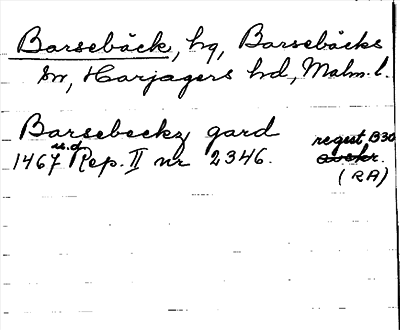 Barsebäck, hg, Barsebäcks
sn, Harjagers hd, Malm. l.
Barsebeckz gard regest B30
1467 u.d. Rep. II nr 2346. avskr.
(RA)